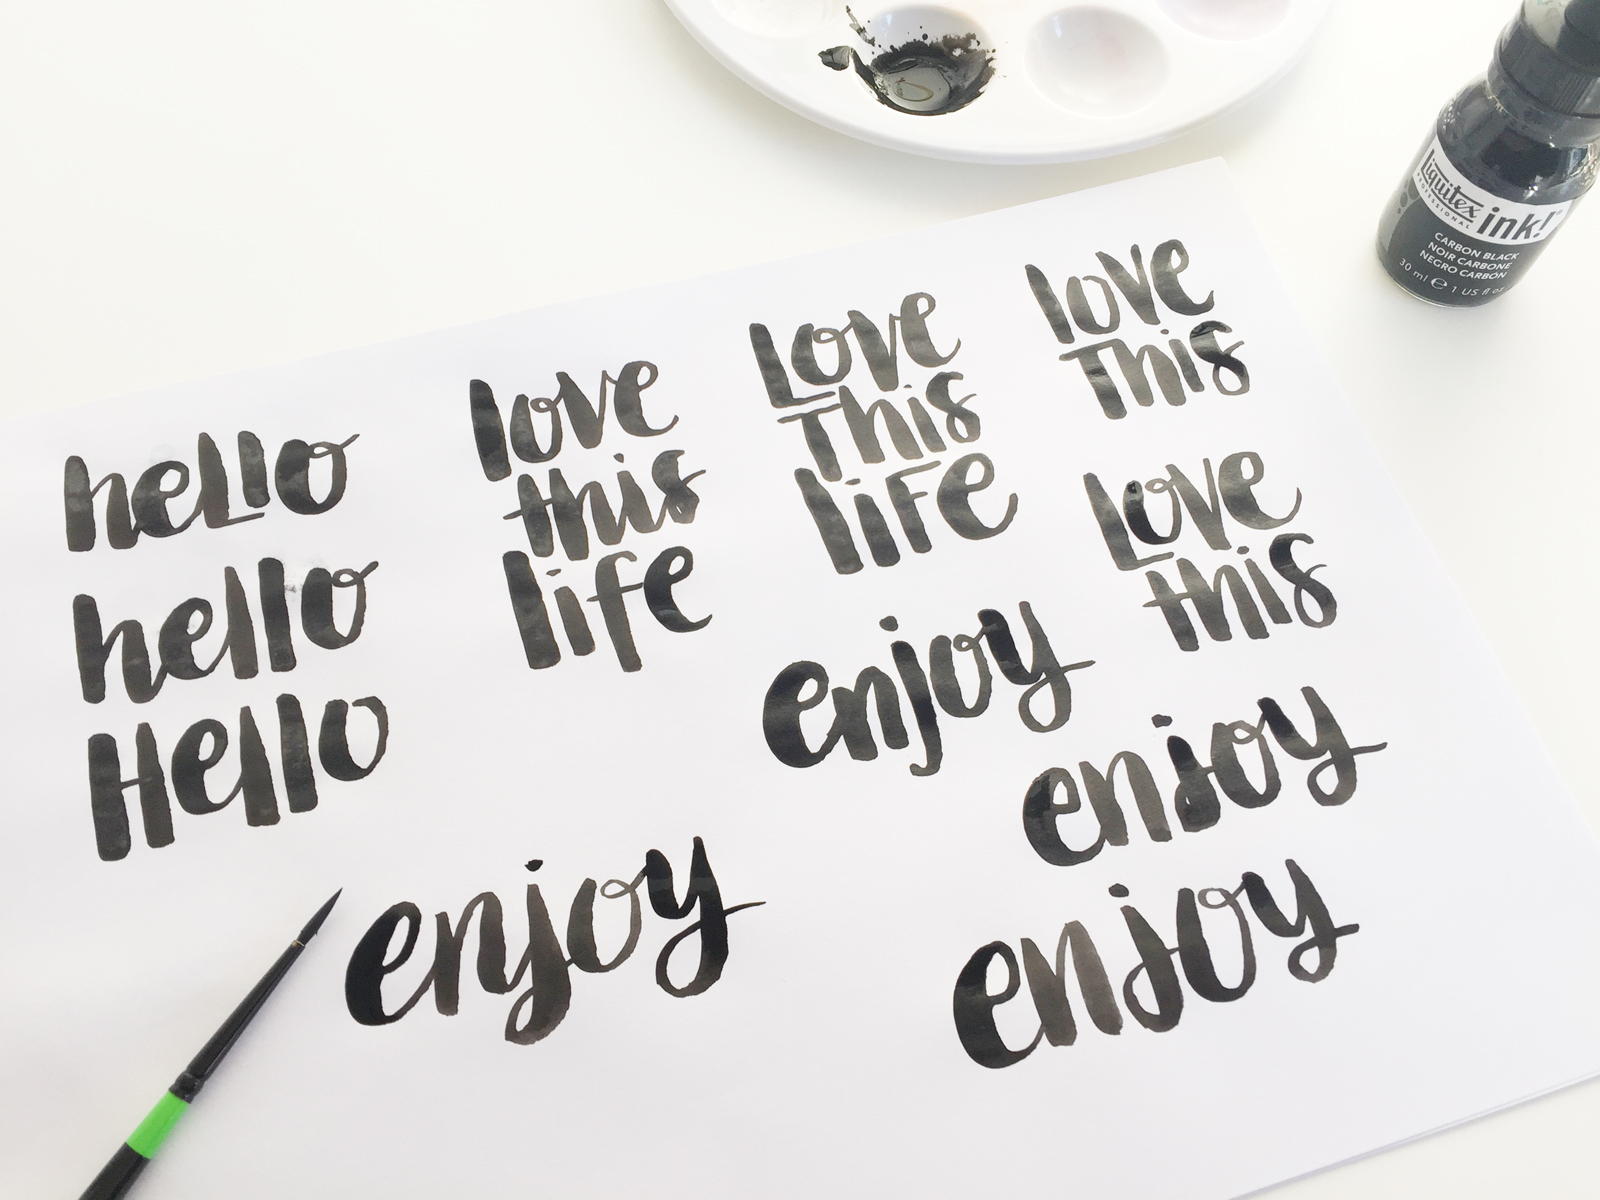 hello
hello
Hello
love
this
life
Love
This
life
love
This
Love
this
enjoy
enjoy
enjoy
enjoy
Liquitex
PROFESSIONAL
ink!
CARBON BLACK
NOIR CARBONE
NEGRO CARBÓN
30 ml e 1 US fl oz